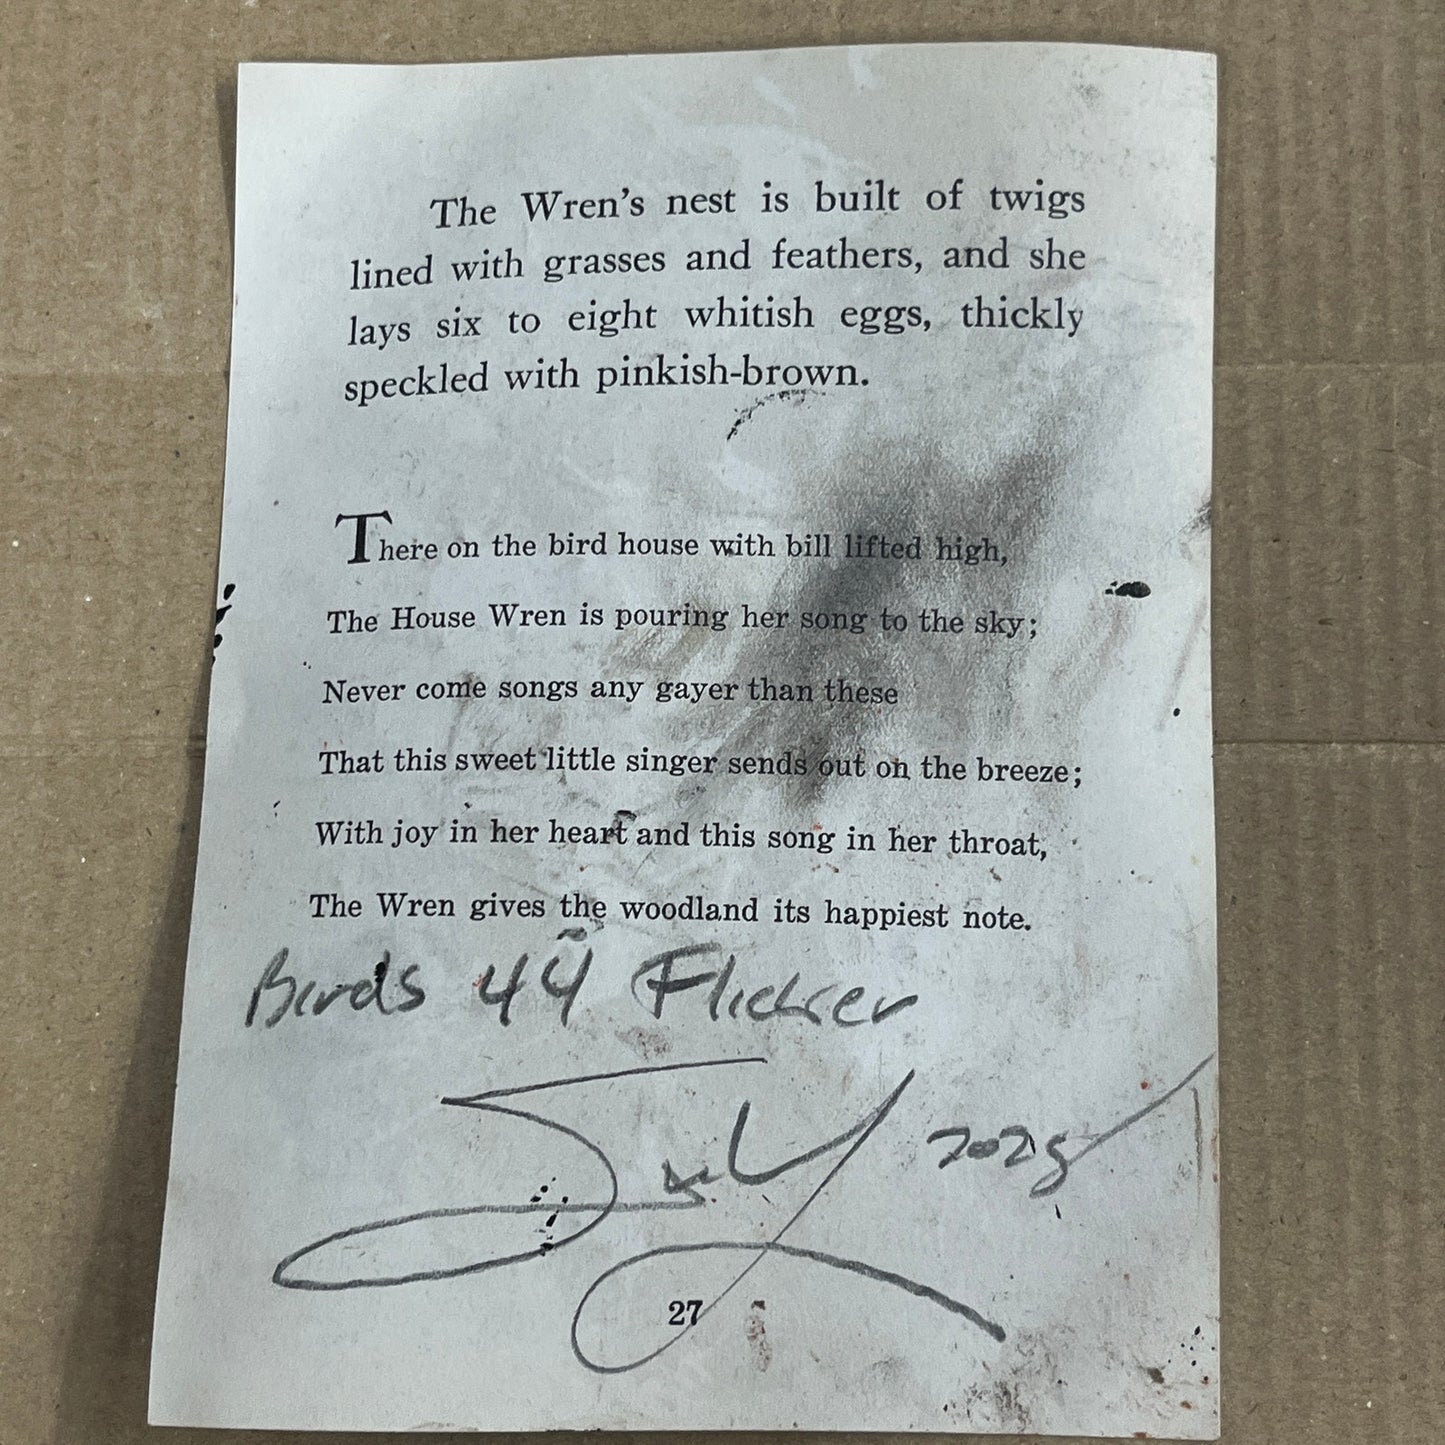 The Wren's nest is built of twigs
lined with grasses and feathers, and she
lays six to eight whitish eggs, thickly
speckled with pinkish-brown.
There on the bird house with bill lifted high,
The House Wren is pouring her song to the sky;
Never come songs any gayer than these
That this sweet little singer sends out on the breeze;
With joy in her heart and this song in her throat,
The Wren gives the woodland its happiest note.
Birds 44 Flicker
27